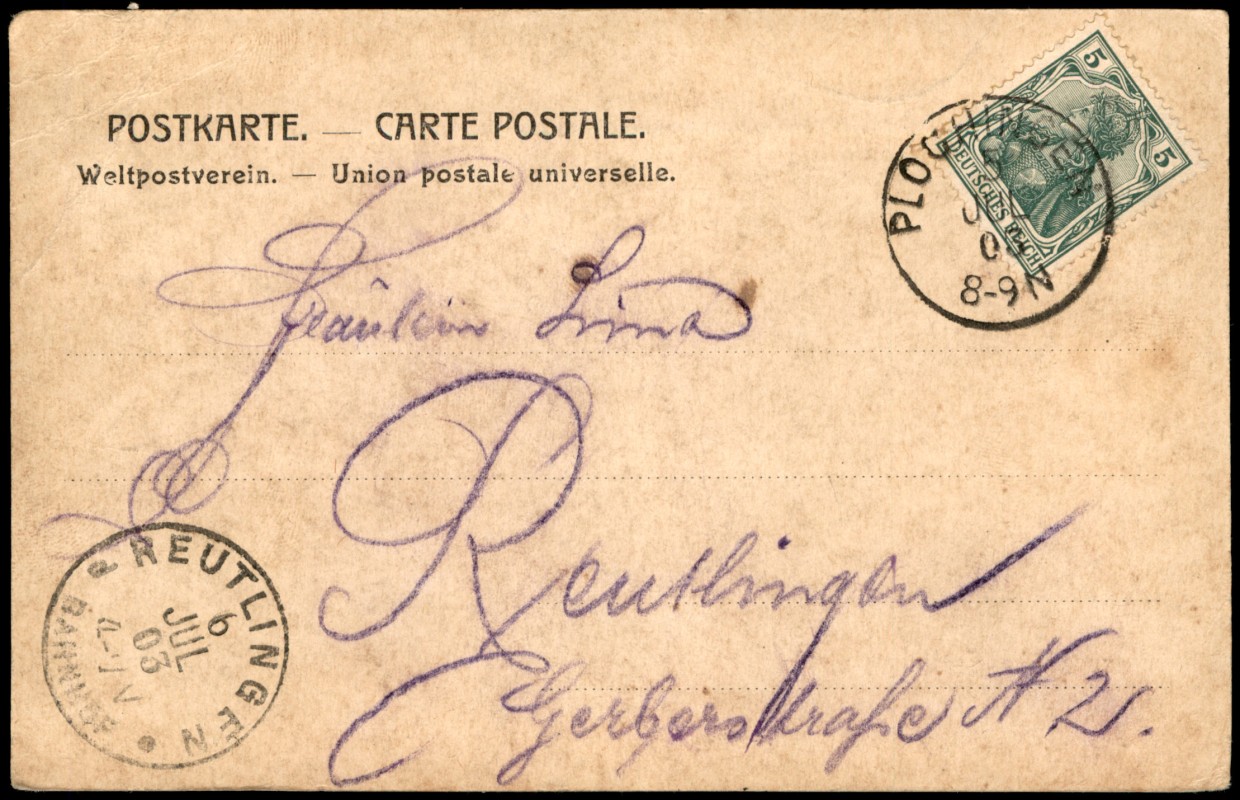 POSTKARTE. — CARTE POSTALE.
Weltpostverein. — Union postale universelle.
5
5
DEUTSCHES REICH
PLOCHINGEN
8-9 N
Fräulein Lina
Reutlingen
Gerberstraße N 2.
REUTLINGEN
6
JUL
03
BAHNHOF